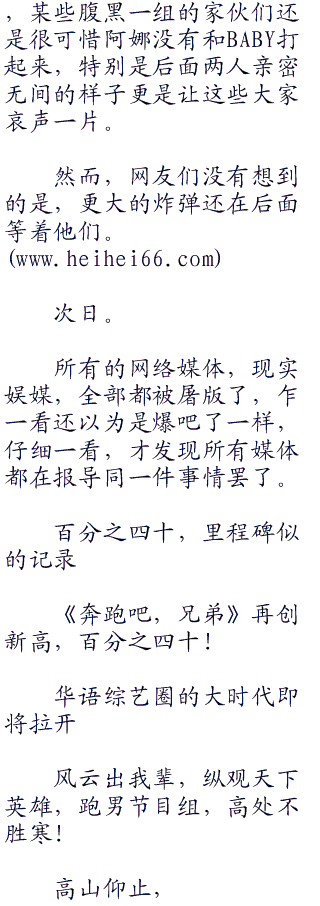 ，某些腹黑一组的家伙们还
是很可惜阿娜没有和BABY打
起来，特别是后面两人亲密
无间的样子更是让这些大家
哀声一片。
然而，网友们没有想到
的是，更大的炸弹还在后面
等着他们。
(www.heihei66.com)
次日。
所有的网络媒体，现实
娱媒，全部都被屠版了，乍
一看还以为是爆吧了一样，
仔细一看，才发现所有媒体
都在报导同一件事情罢了。
百分之四十，里程碑似
的记录
《奔跑吧，兄弟》再创
新高，百分之四十！
华语综艺圈的大时代即
将拉开
风云出我辈，纵观天下
英雄，跑男节目组，高处不
胜寒！
高山仰止，